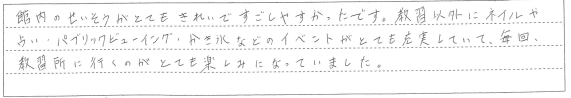 館内のせいそうがとてもきれいですごしやすかったです。教習以外にネイルや
占い・パブリックビューイング・かき氷などのイベントがとても充実していて、毎回、
教習所に行くのがとても楽しみになっていました。